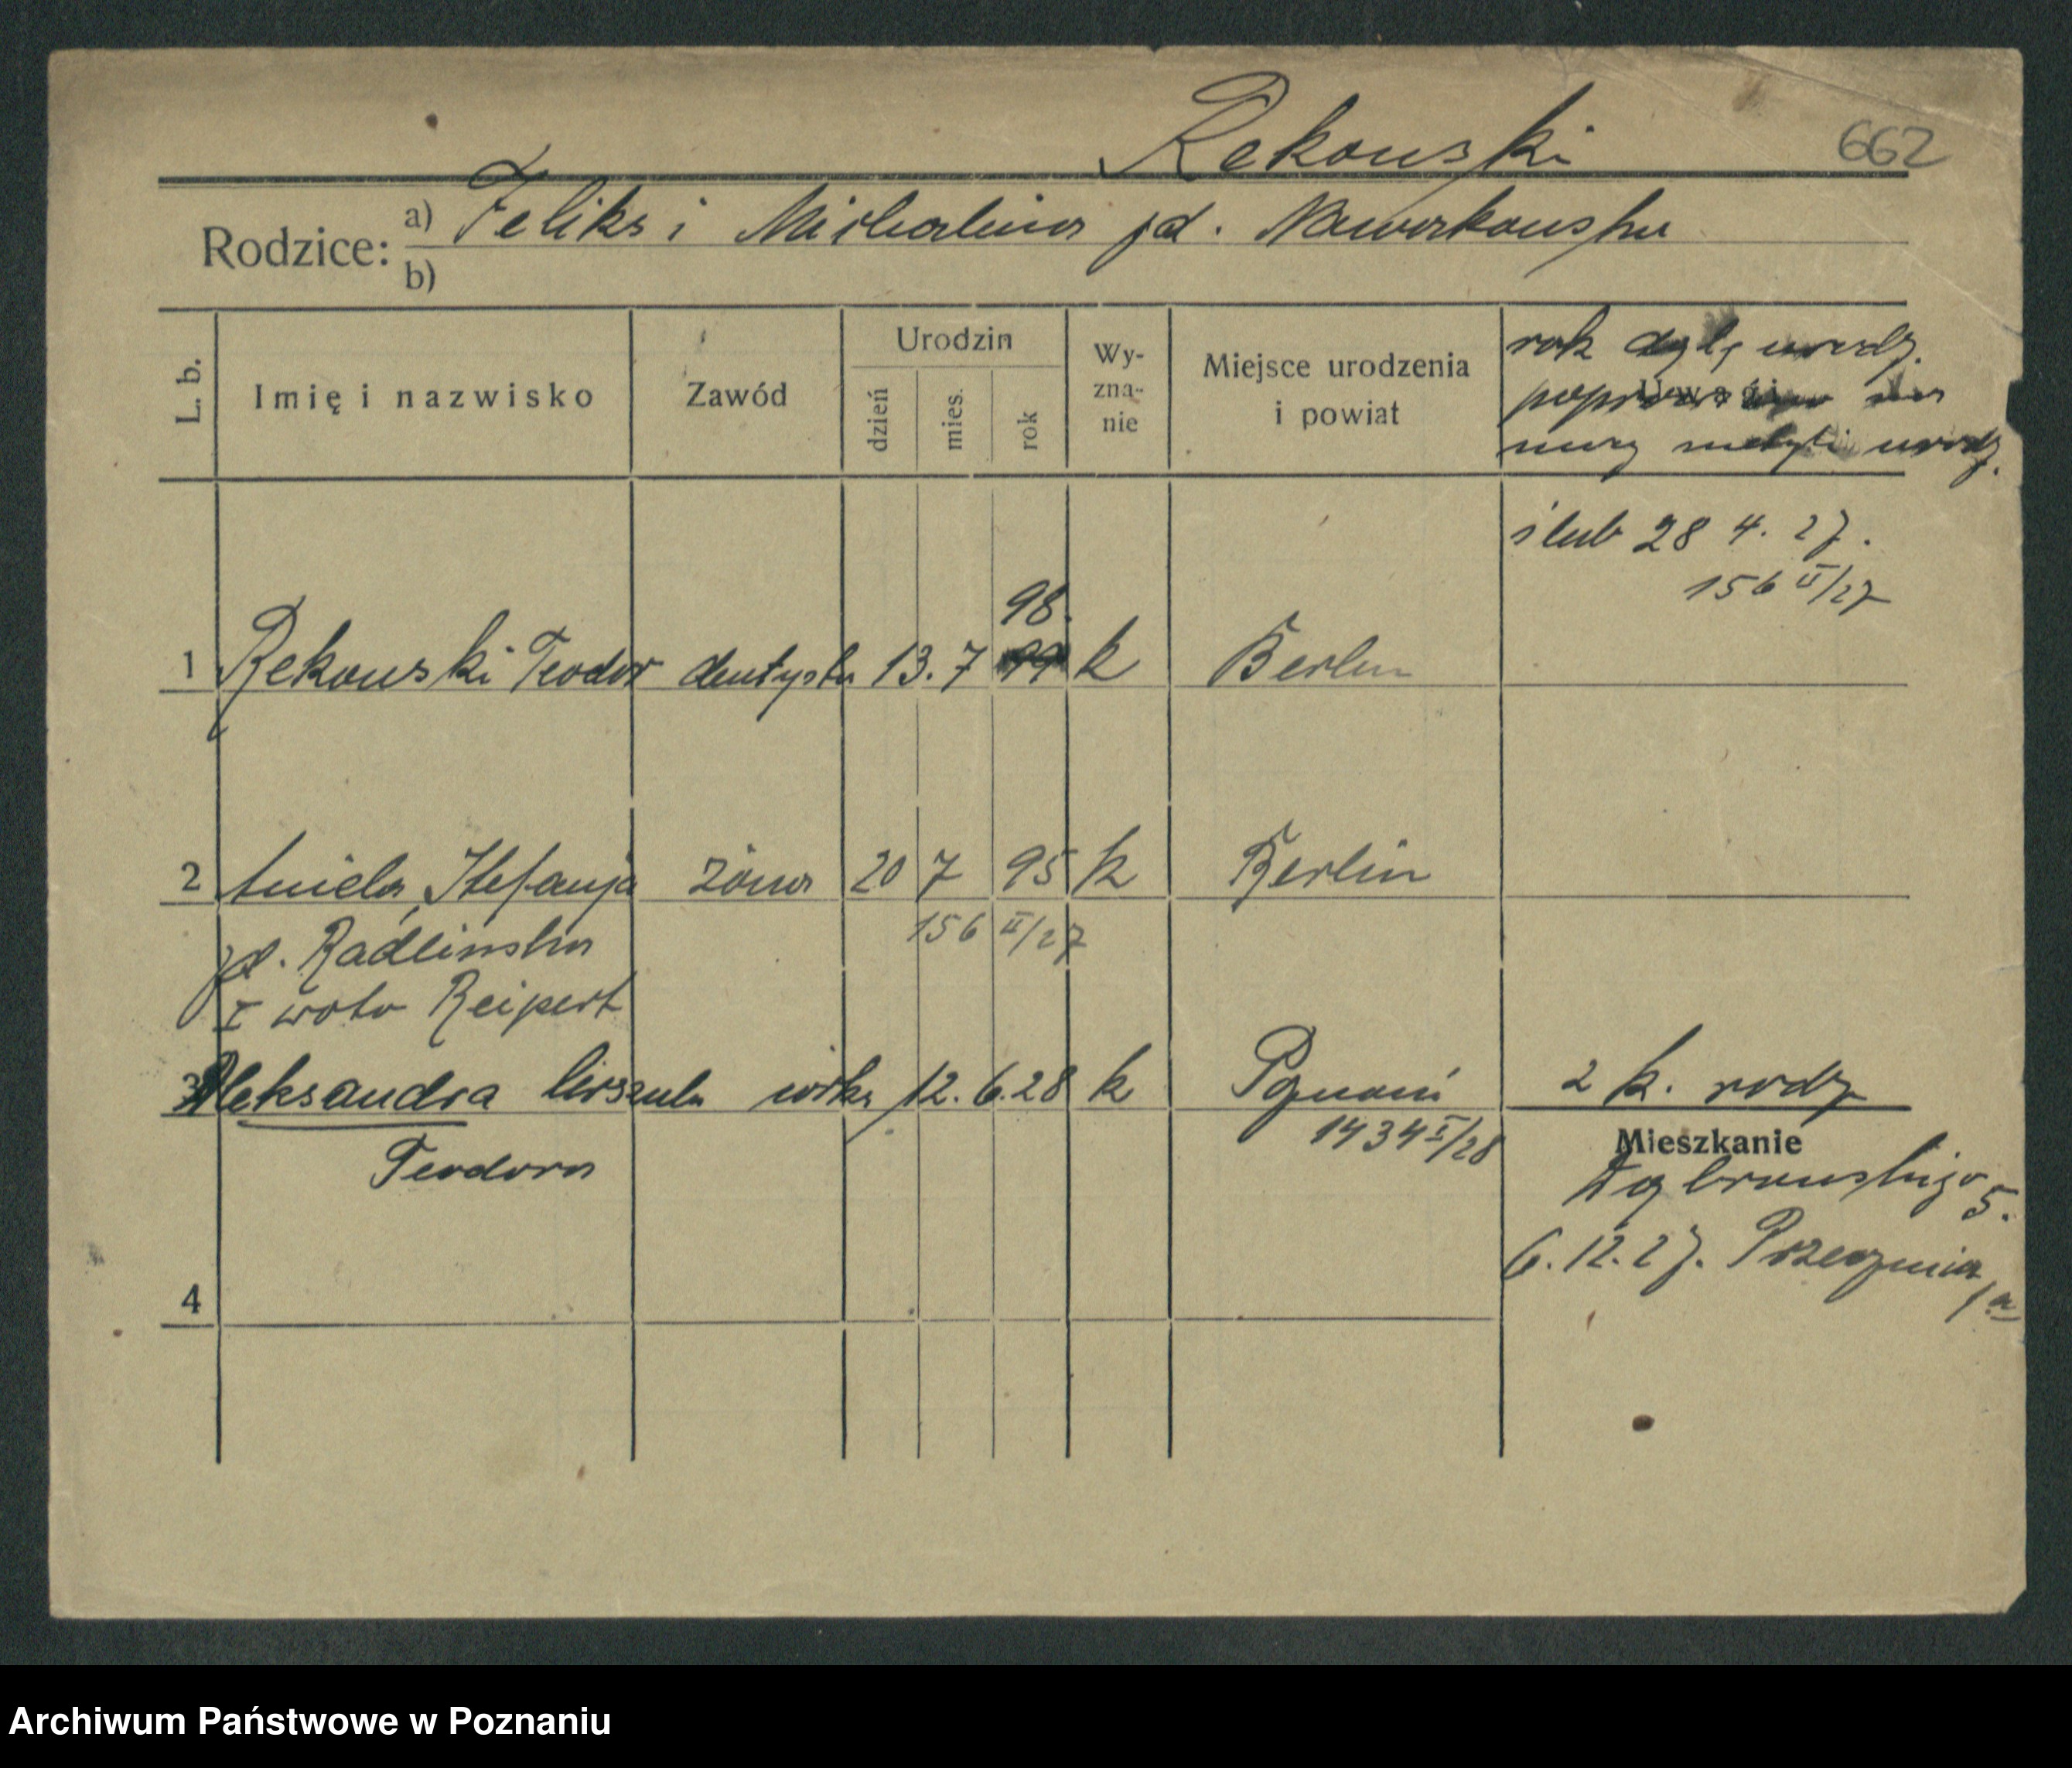 Rekowski 662
Rodzice: a) Feliks i Michalina jd. Nawrokowska
b)
L. b. Imię i nazwisko Zawód Urodzin dzień mies. rok Wy-zna-nie Miejsce urodzenia i powiat Uwagi
rok urodz.
na
metryki urodz.
ślub 28 4. 27.
156 II/27
98.
1 Rekowski Teodor dentysta 13. 7 99 k Berlin
2 Aniela, Stefanja żona 20 7 95 k Berlin
156 II/27
jd. Radlinska
I woto Reipert
3 Aleksandra Urszula córka 12. 6. 28 k Poznań 2 k. rodz
1434 I/28
Teodora
Mieszkanie
Dąbrowskiego 5.
6. 12. 27. Przecznica
1a
4
Archiwum Państwowe w Poznaniu